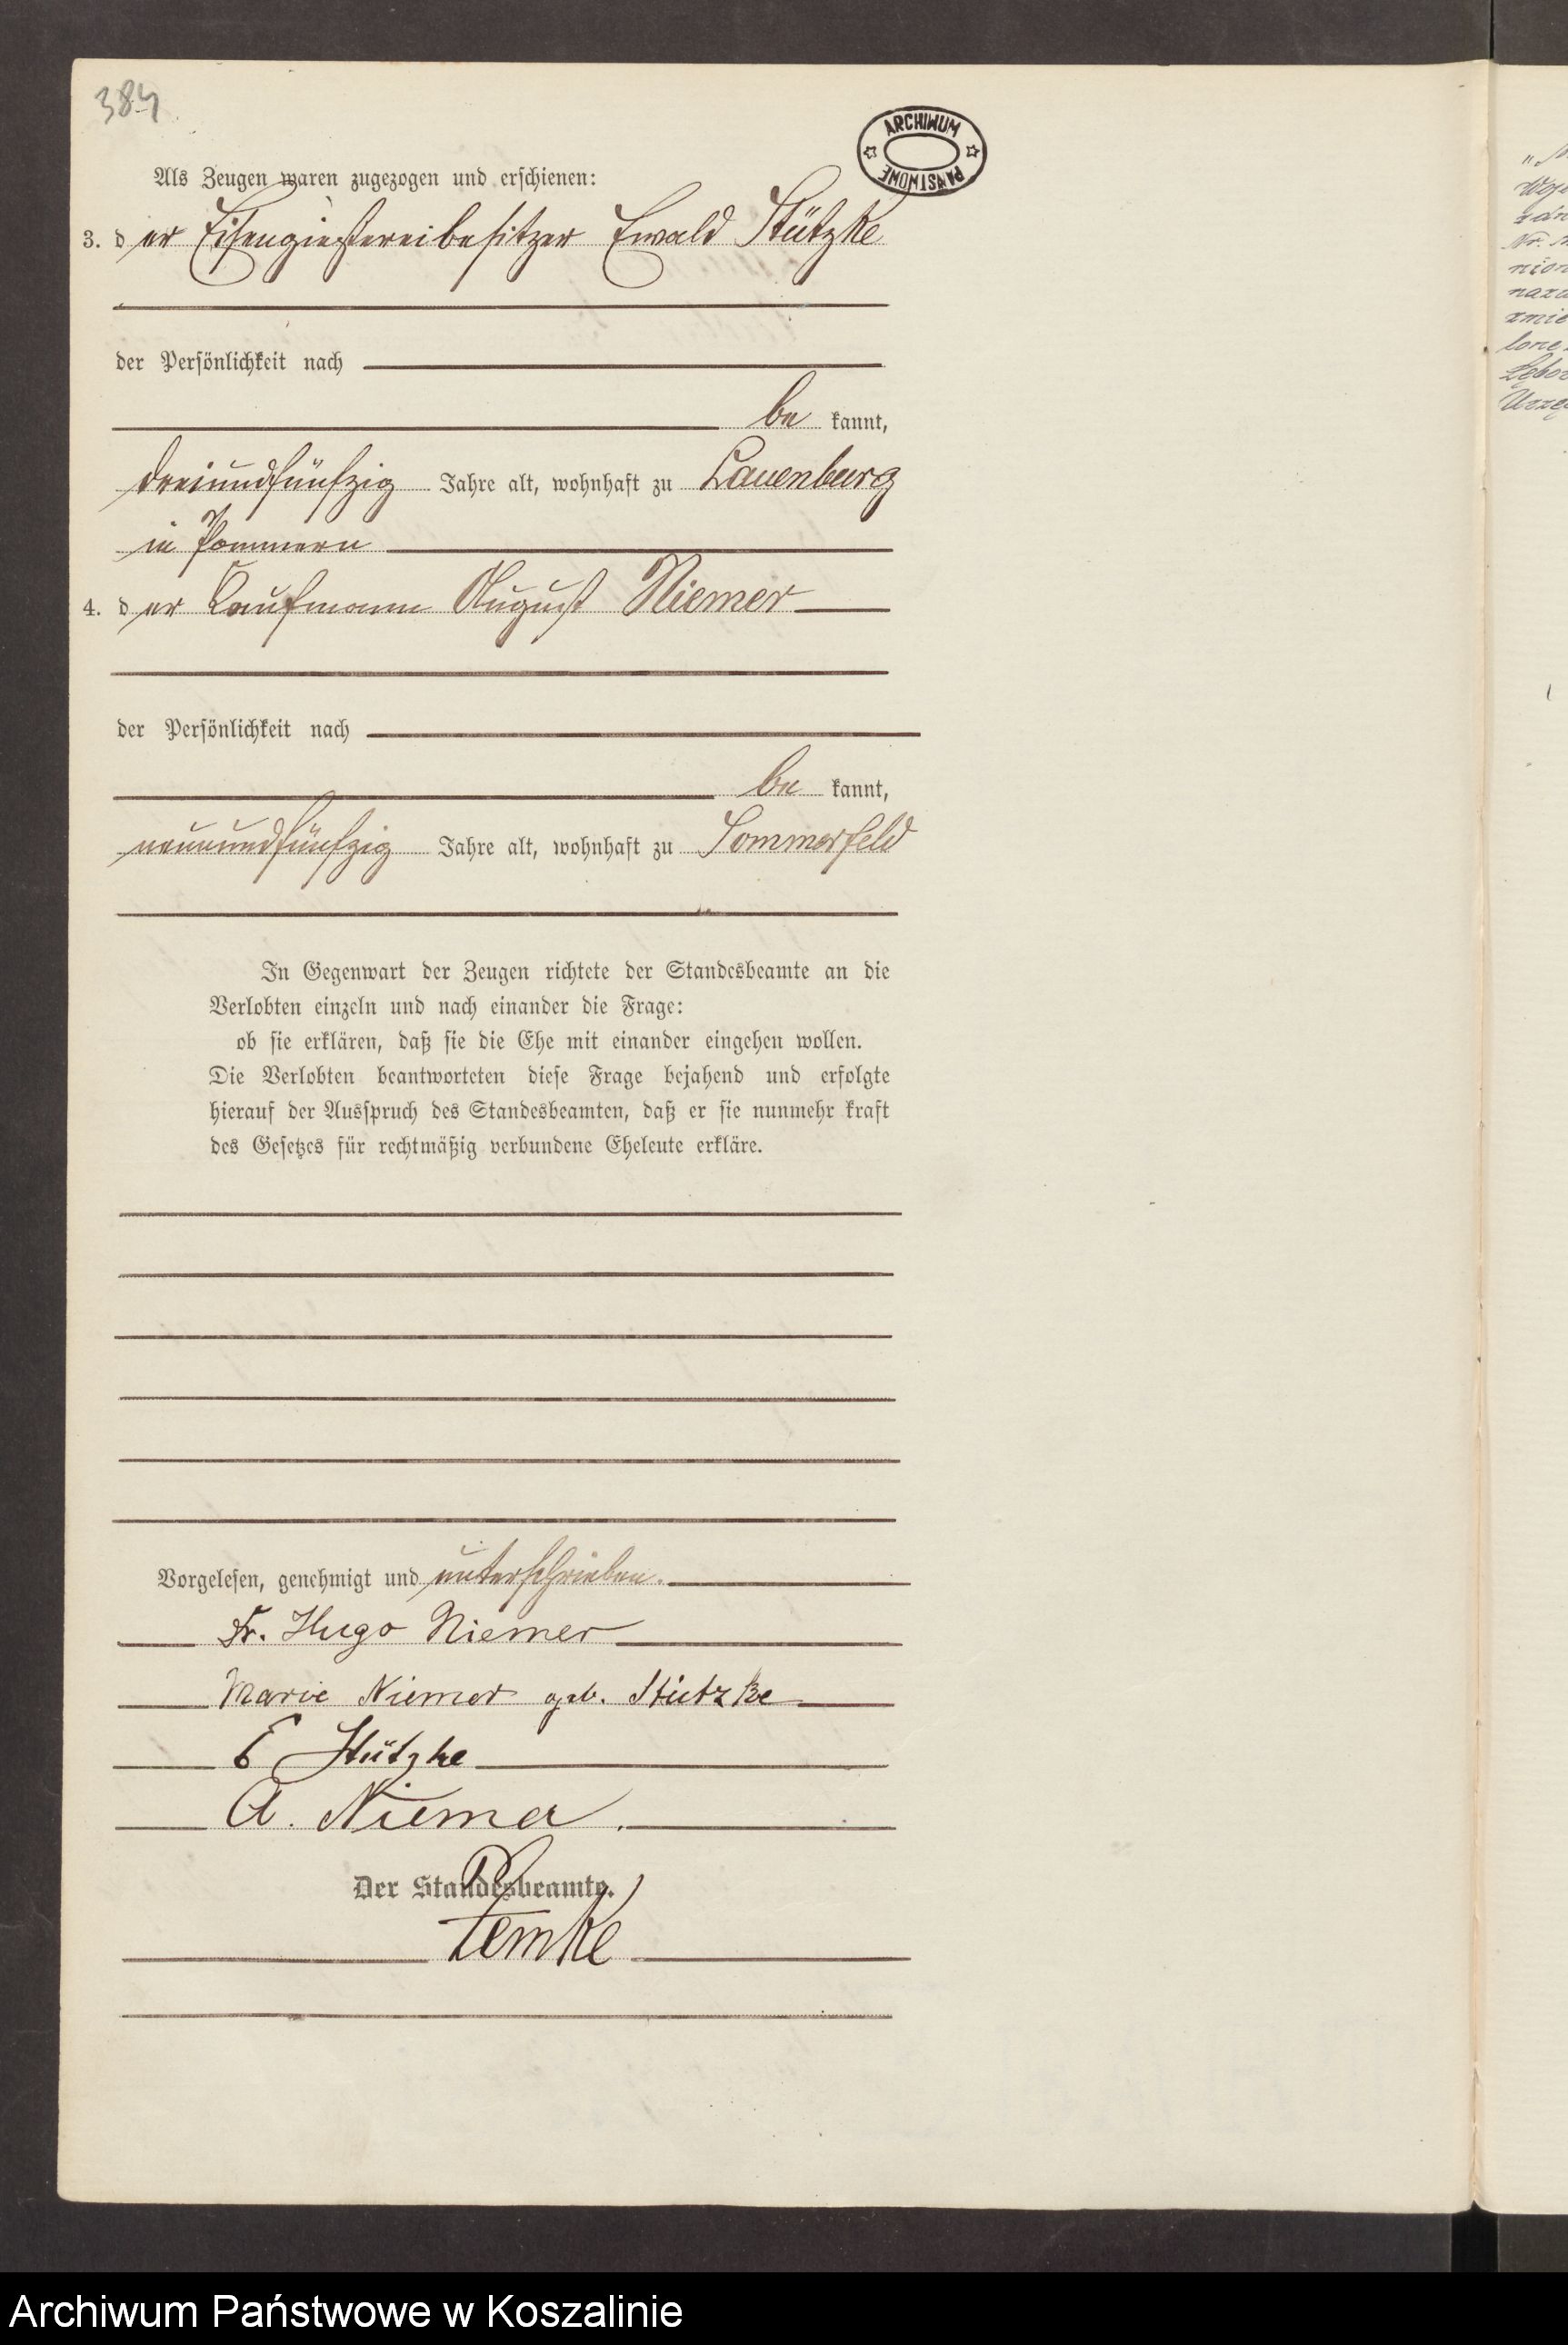 384
ARCHIWUM PAŃSTWOWE
Als Zeugen waren zugezogen und erschienen:
3. der Eisengießereibesitzer Ewald Stützke
der Persönlichkeit nach
be kannt,
dreiundfünfzig Jahre alt, wohnhaft zu Lauenburg
in Pommern
4. der Kaufmann August Niemer
der Persönlichkeit nach
be kannt,
neunundfünfzig Jahre alt, wohnhaft zu Sommerfeld
In Gegenwart der Zeugen richtete der Standesbeamte an die
Verlobten einzeln und nach einander die Frage:
ob sie erklären, daß sie die Ehe mit einander eingehen wollen.
Die Verlobten beantworteten diese Frage bejahend und erfolgte
hierauf der Ausspruch des Standesbeamten, daß er sie nunmehr kraft
des Gesetzes für rechtmäßig verbundene Eheleute erkläre.
Vorgelesen, genehmigt und unterschrieben.
Fr. Hugo Niemer
Marie Niemer geb. Stützke
E Stützke
A. Niemer.
Der Standesbeamte.
Temke
Archiwum Państwowe w Koszalinie